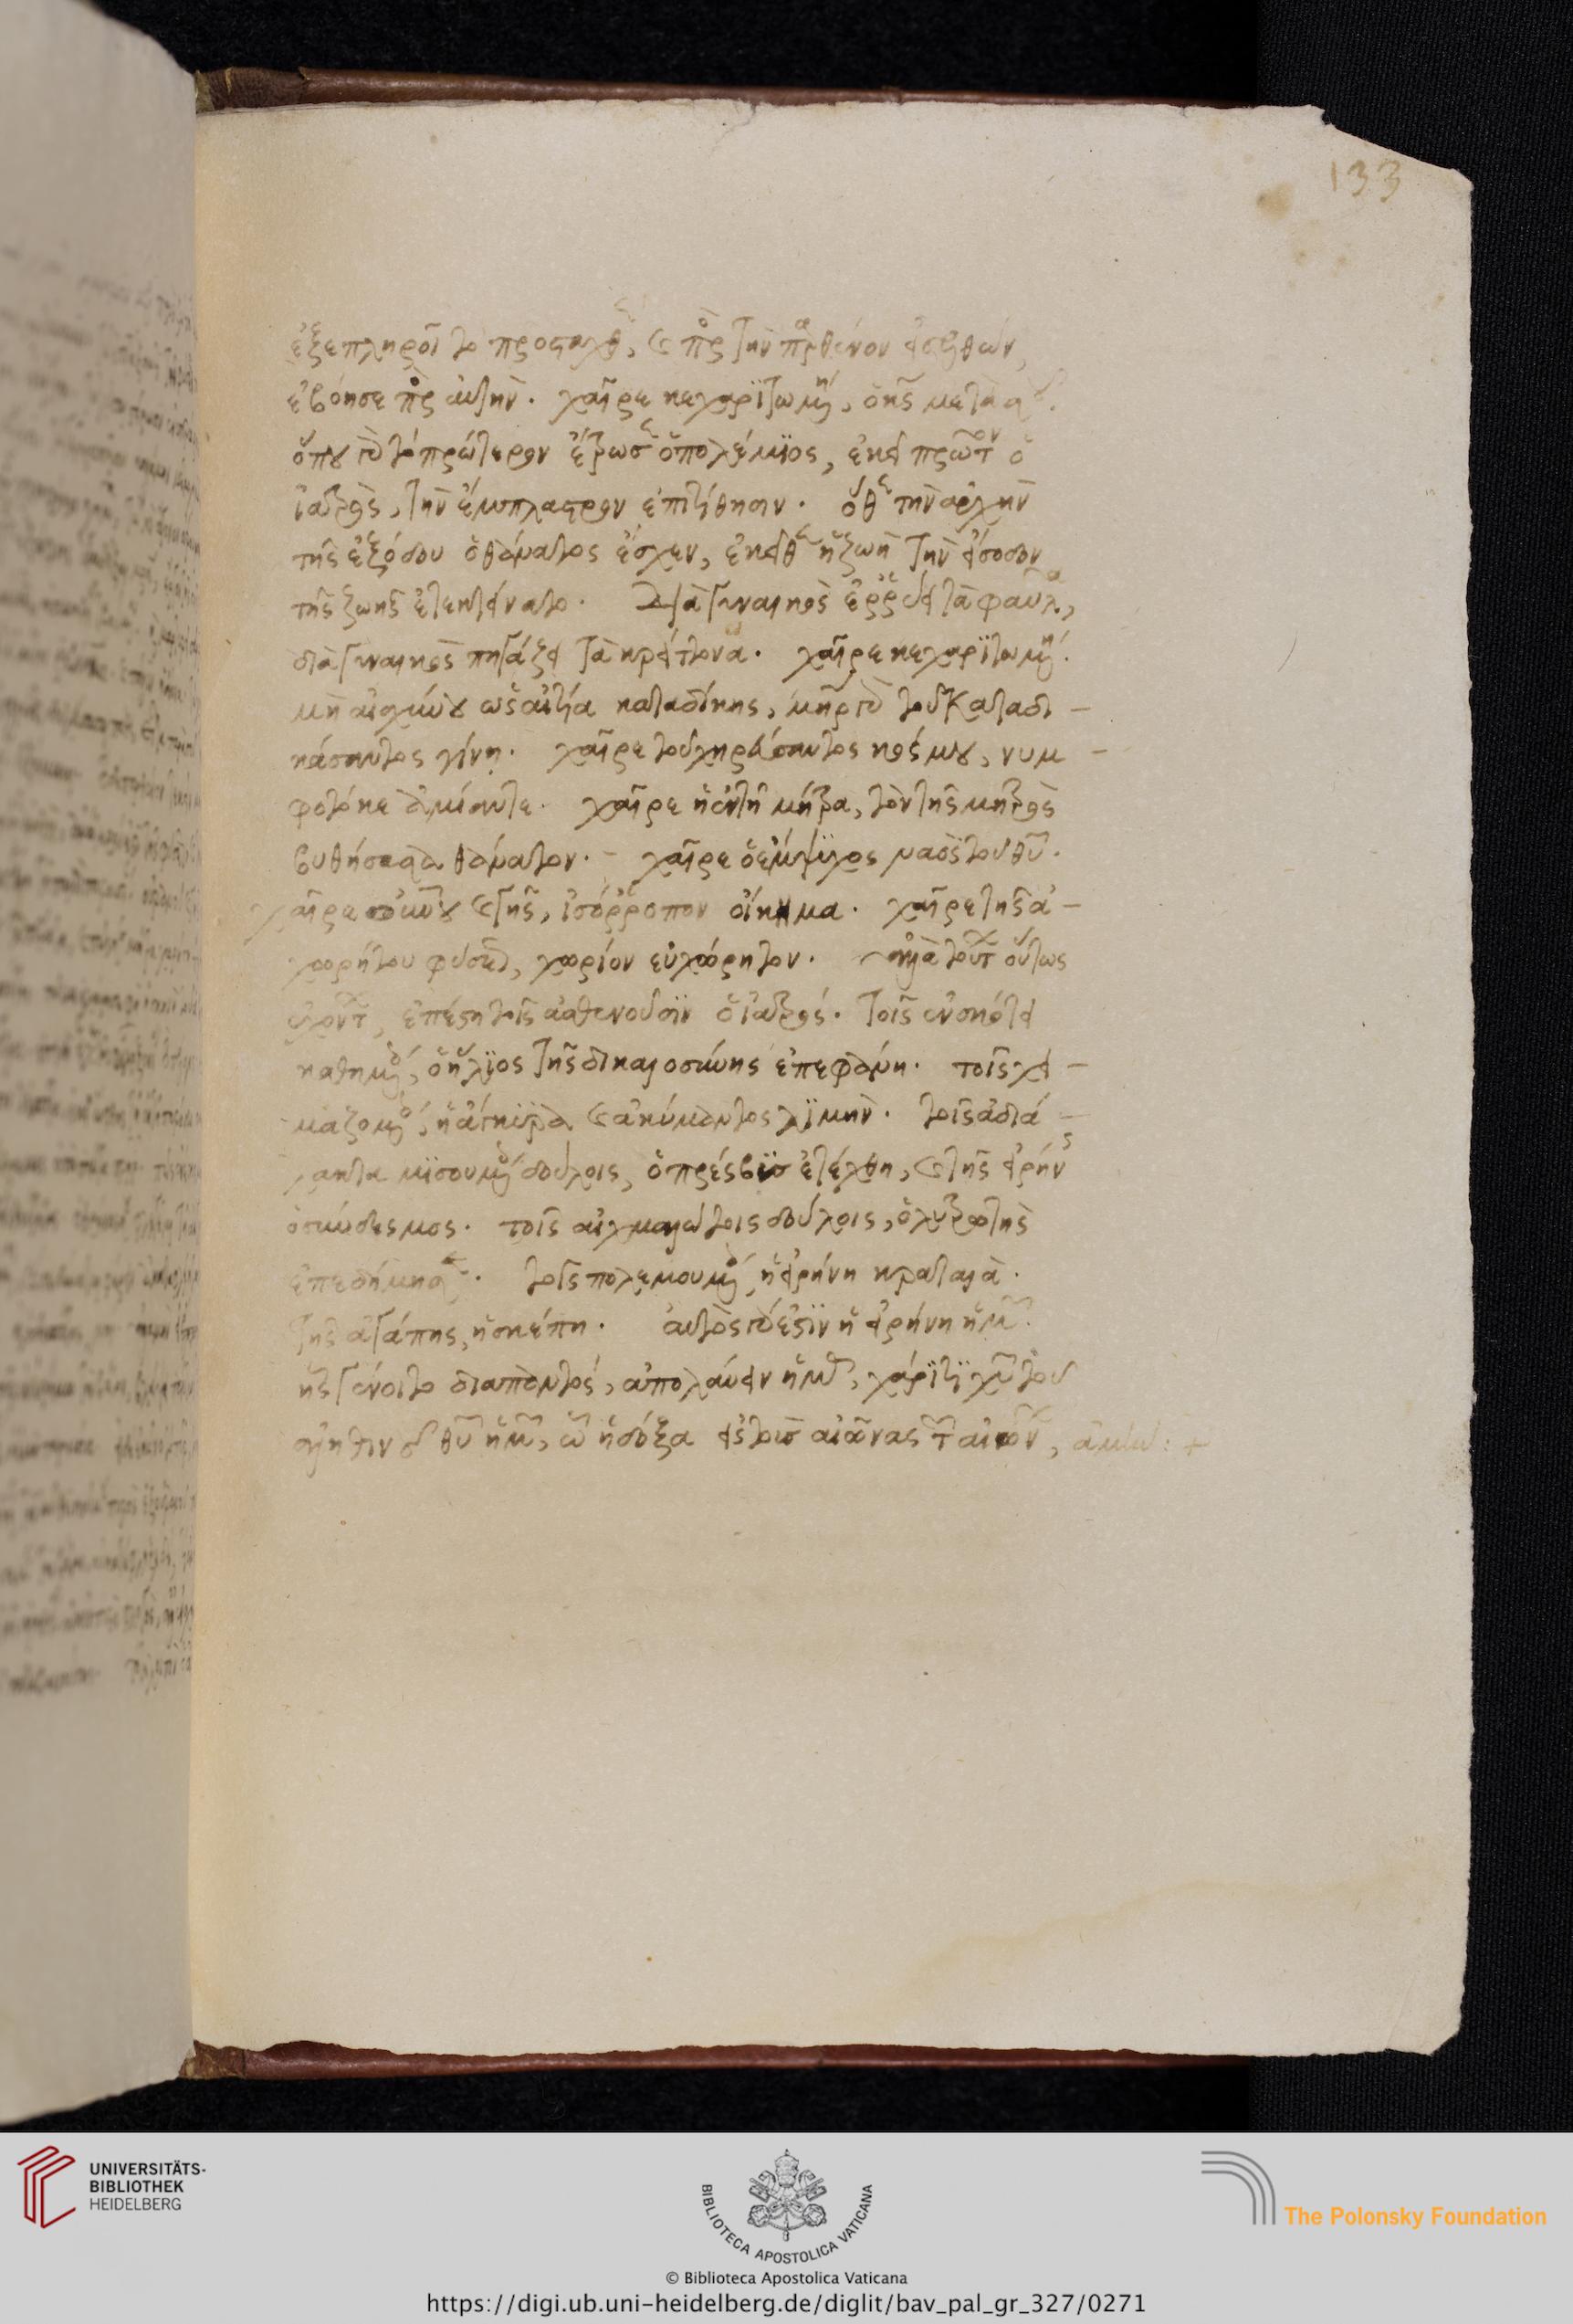 133
ἐξεπλήρου τὸ προσταχθὲν, καὶ πρὸς τὴν παρθένον εἰσελθὼν,
ἐβόησε πρὸς αὐτήν. χαῖρε κεχαριτωμένη, ὁ κς μετὰ σοῦ.
ὅπου τὸ πρότερον ἔτρωσεν ὁ πολέμϊος, ἐκεῖ πρῶτον ὁ
ἰατρὸς, τὴν ἔμπλαστρον ἐπιτίθησιν. ὅθεν τὴν ἀρχὴν
τῆς ἐξόδου ὁ θάνατος ἔσχεν, ἐκεῖθεν ἡ ζωὴ τὴν εἴσοδον
τῆς ζωῆς ἐτεκτείνατο. Διὰ γυναικὸς ἐρρύει τὰ φαῦλα,
διὰ γυναικὸς πηγάζει τὰ κρείττονα. χαῖρε κεχαριτωμένη.
μὴ αἰσχύνου ὡς αἰτία καταδίκης, μῆρ τοῦ καταδι-
κάσαντος γίνη. χαῖρε τοῦ χηρεύσαντος κόσμου, νυμ-
φοτόκε ἀμίαντε. χαῖρε ἡ ἐν τῇ μήτρα, τὸν τῆς μητρὸς
βυθήσασα θάνατον. - χαῖρε ὁ ἔμψϋχος ναὸς τοῦ θυ.
χαῖρε οὐνου καὶ γῆς, ἰσόρροπον οἴκημα. χαῖρε τῆς ἀ-
χωρήτου φύσεως, χωρίον εὐχώρητον. ἀλλὰ τούτων οὕτως
ἐχόντων, ἐπέστη τοῖς ἀσθενοῦσϊν ὁ ἰατρός. τοῖς ἐν σκότει
καθημένοις, ὁ ἥλϊος τῆς δικαιοσύνης ἐπεφάνη. τοῖς χει-
μαζομένοις, ἡ ἄγκϋρα καὶ ἀκύμαντος λϊμήν. τοῖς ἀδιά-
λακτα μϊσουμένοις δούλοις, ὁ πρέσβϋς ἐτέχθη, καὶ τῆς εἰρήνης
ὁ σύνδεσμος. τοῖς αἰχμαλώτοις δούλοις, ὁ λυτρωτὴς
ἐπεδήμησεν. τοῖς πολεμουμένοις, ἡ εἰρήνη κραταιά.
τῆς ἀγάπης, ἡ σκέπη. αὐτὸς γάρ ἐστϊν ἡ εἰρήνη ἡμῶν.
ἧς γένοιτο διαπαντός, ἀπολαύειν ἡμᾶς, χάρϊτϊ χυ τοῦ
ἀληθινοῦ θυ ἡμῶν, ᾧ ἡ δόξα εἰς τοὺς αἰῶνας τῶν αἰώνων, ἀμήν: +
UNIVERSITÄTS-
BIBLIOTHEK
HEIDELBERG
BIBLIOTECA APOSTOLICA VATICANA
The Polonsky Foundation
© Biblioteca Apostolica Vaticana
https://digi.ub.uni-heidelberg.de/diglit/bav_pal_gr_327/0271